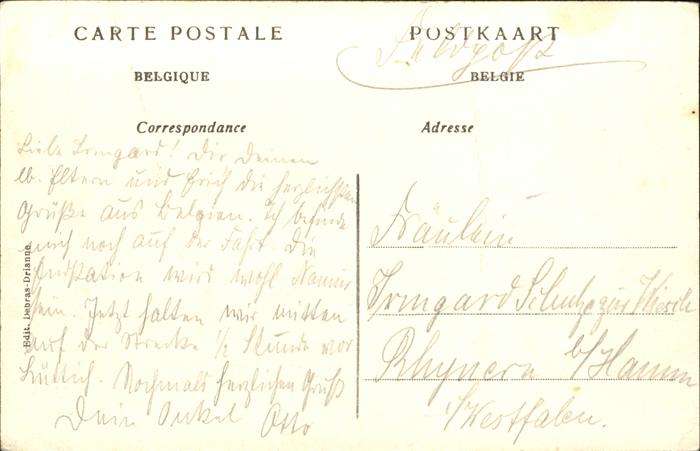 CARTE POSTALE
POSTKAART
Feldpost
BELGIQUE
BELGIE
Correspondance
Adresse
Liebe Irmgard! Dir Deinen
lb. Eltern und Erich die herzlichsten
Grüße aus Belgien. Ich befinde
mich noch auf der Fahrt. Die
Endstation wird wohl Namur
sein. Jetzt halten wir mitten
auf der Strecke 1/2 Stunde vor
Lüttich. Nochmals herzlichen Gruß
Dein Onkel Otto
Edit. Depras-Drianne
Fräulein
Irmgard Schulze zur
Rhynern b/Hamm
i/Westfalen.